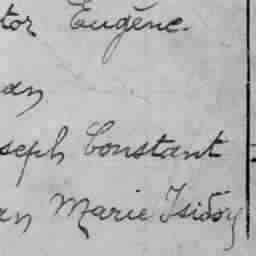 tor Eugène
an
seph Constant
an Marie Isidor